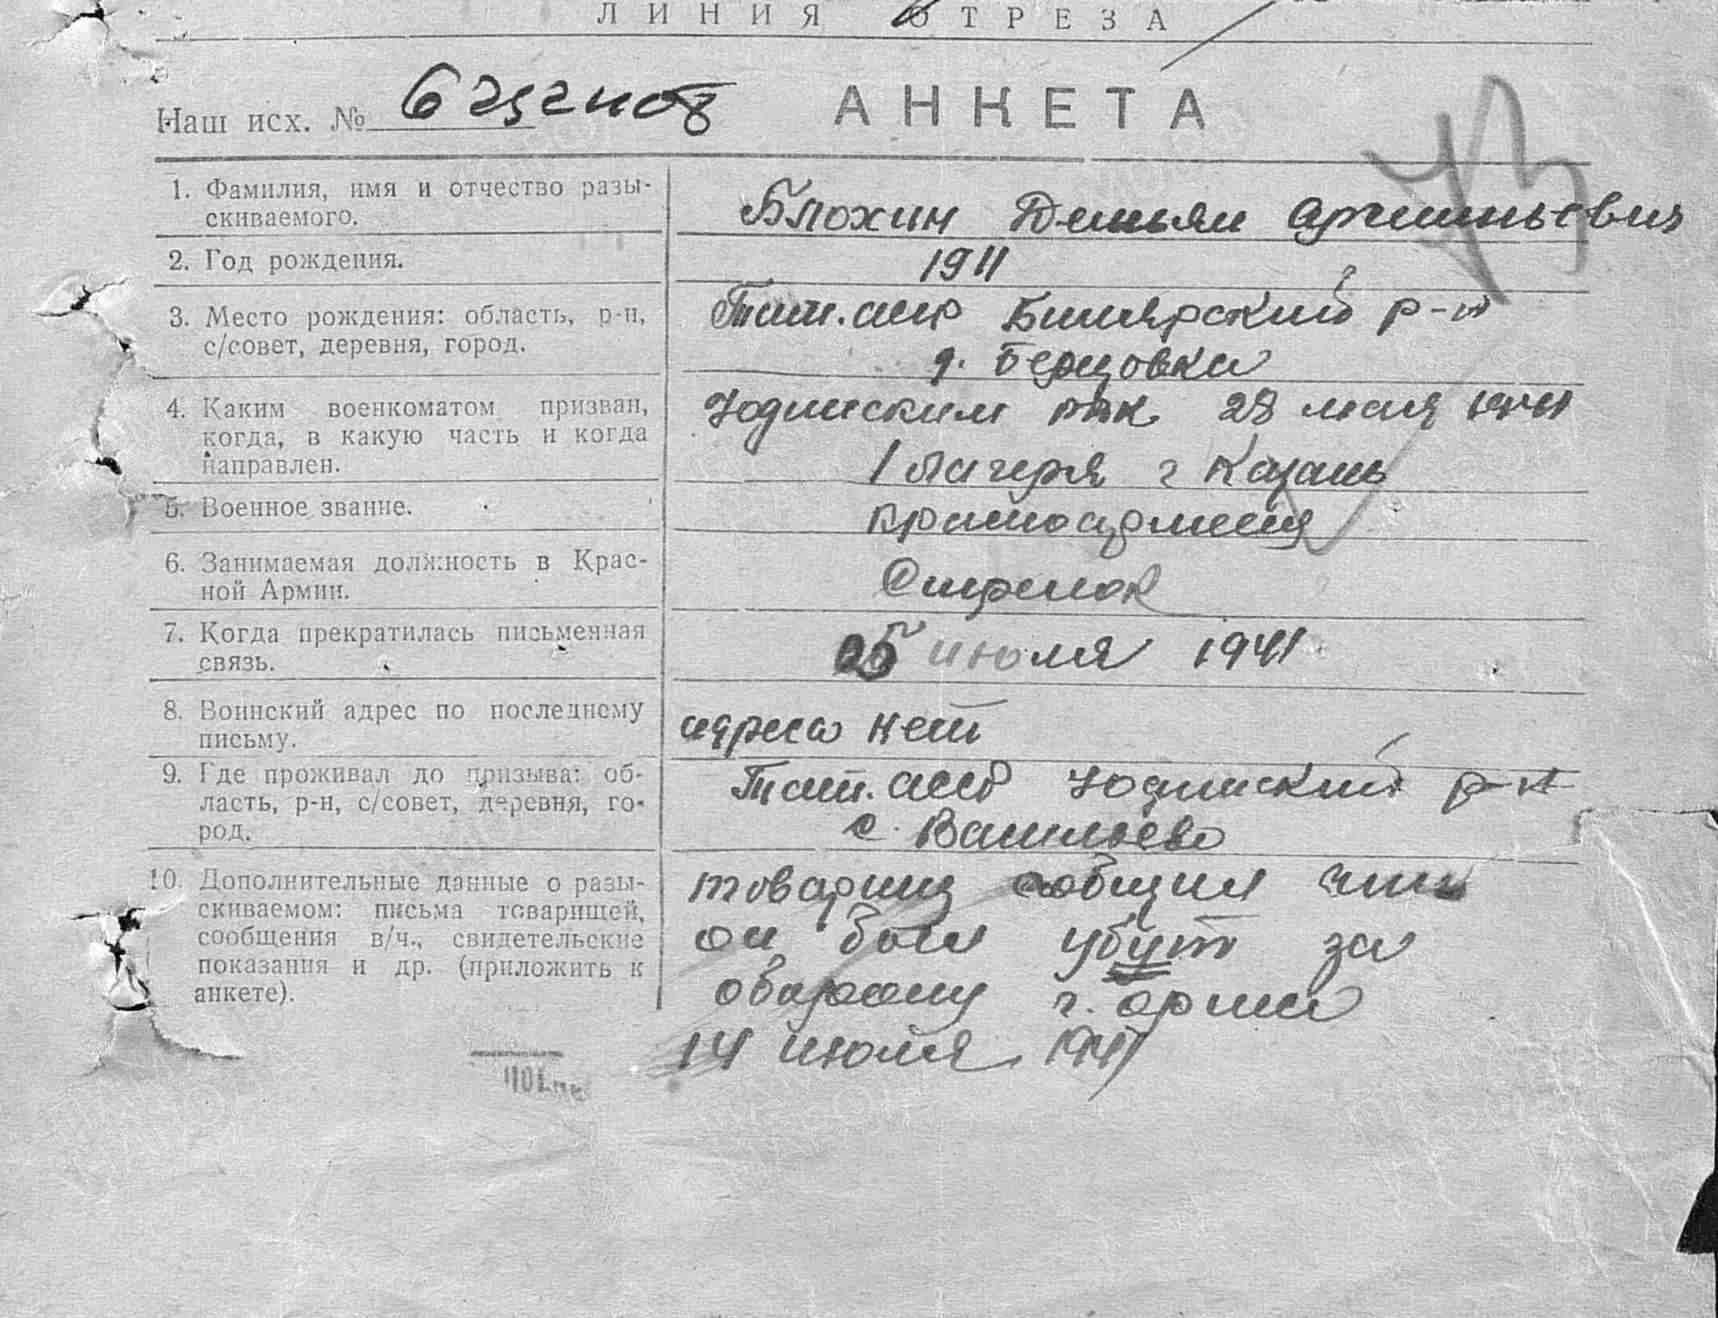 ЛИНИЯ ОТРЕЗА
Наш исх. №
АНКЕТА
1. Фамилия, имя и отчество разы-
скиваемого.
Блохин Демьян
2. Год рождения.
1911
3. Место рождения: область, р-н,
с/совет, деревня, город.
Тат. асср Билярский р-н
д.
4. Каким военкоматом призван,
когда, в какую часть и когда
направлен.
Юдинским 28 мая 1941
1 лагеря г Казань
5. Военное звание.
красноармеец
6. Занимаемая должность в Крас-
ной Армии.
Стрелок
7. Когда прекратилась письменная
связь.
05 июля 1941
8. Воинский адрес по последнему
письму.
адреса нет
9. Где проживал до призыва: об-
ласть, р-н, с/совет, деревня, го-
род.
Тат. асср Юдинский р-н
с. Васильево
10. Дополнительные данные о разы-
скиваемом: письма товарищей,
сообщения в/ч., свидетельские
показания и др. (приложить к
анкете).
товарищ сообщил что
он был убит за
оборону г. Орша
14 июля 1941